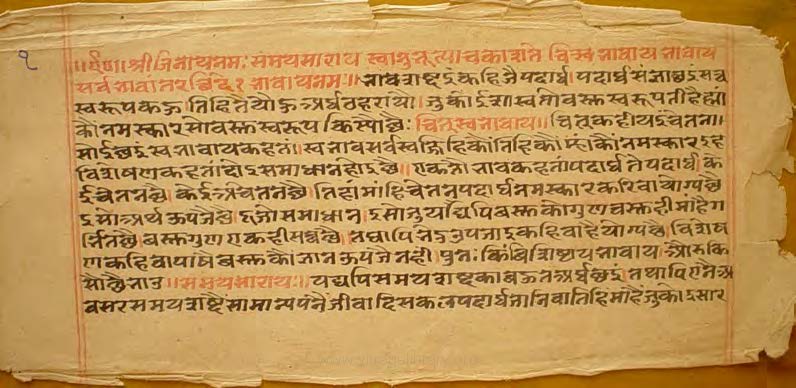 १
॥र्द०॥ श्रीजिनायनमः संमयसाराय स्वानुभूत्याचकासते चित्स्वभावाय भावाय
सर्वभावांतरच्छिदे १ भावायनमः॥ भावशब्दइ कहिजै पदार्थ पदार्थ संज्ञा छइ सत्व
स्वरूप कऊ तिहितै यौ अर्थ ठहरायौ। जु कोई शास्वतो वस्तु स्वरूप तीहै म्हां
कौ नमस्कार सो वस्तु स्वरूप किसौ छै चित्स्वभावाय॥ चित् कहीयइ चेतना।
सोई छइ स्वभावाय कहतां। स्वभाव सर्वस्व जिहिकौ तिहिकौ म्हाकौ नमस्कार इह
विशेषण कहतां दोइ समाधान होइ छै॥ एक तौ भाव कहतां पदार्थ ते पदार्थ के
ई चेतन छै॥ केई अचेतन छै॥ तिहा मांहि चेतनु पदार्थ नमस्कार करिवा योग्य छै
इसो अर्थ ऊपजै छै॥ दूजा समाधान इसो जु यद्यपि वस्त को गुण वस्त ही मांहै ग
र्भित छै॥ वस्त गुण एक ही सत्व छै॥ तथापि भेद उपजाइ कहिवाहे योग्य छै॥ विशेष
ण कहिवा पाषै वस्त कौ ज्ञान उपजै नही॥ पुनः किं विशिष्टाय भावाय और कि
सौ छै भाउ॥ समयसाराय॥ यद्यपि समय शब्द का बऊत अर्थ छइ तथापि एनै अ
वसर समय शब्दै सामान्यपनै जीवादि सकल पदार्थ जानिवा तिहि मांहै जु कोइ सार